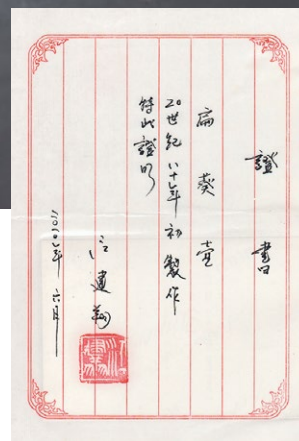 證書
扁葵壺
20世紀八十年初製作
特此證明
江建翔
年 六月